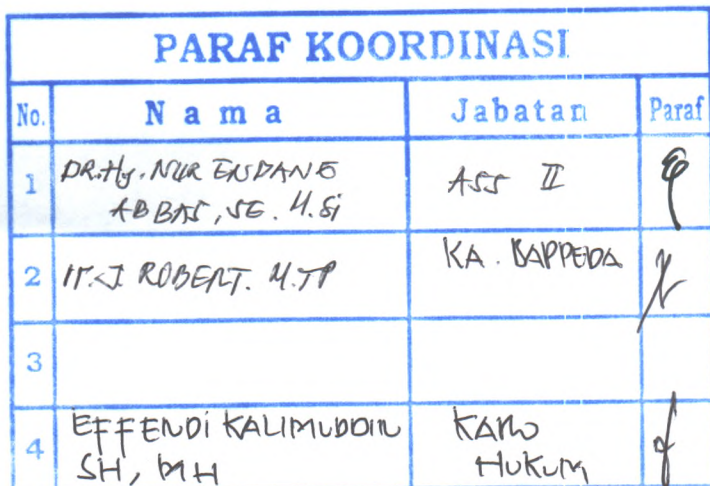 PARAF KOORDINASI
No. Nama Jabatan Paraf
1 DR.Hj. NUR ENDANE ASS II
ABBAS, SE. M.Si
2 ROBERT. M.TP KA. BAPPEDA
3
4 EFFENDI KALIMUDDIN KARO
SH, MH HUKUM